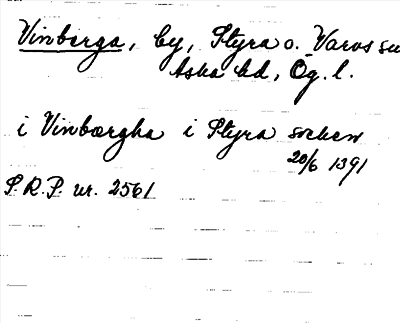 Vinberga, by, Styra o. Varvs sn
Aska hd, Ög. l.
i Vinbærgha i Styra sochen
20/6 1391
S.R.P. nr. 2561